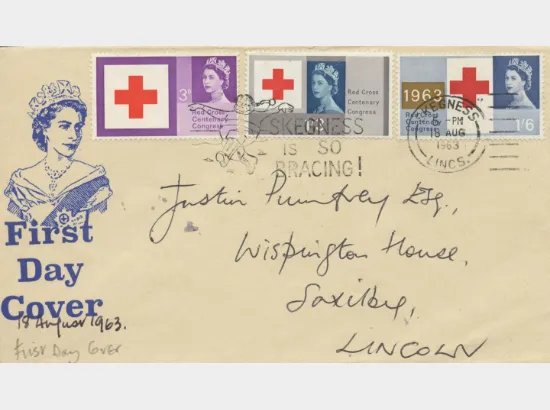 3d
Red Cross
Centenary
Congress
Red Cross
Centenary
Congress
1963
Red Cross
Centenary
Congress
1/6
SKEGNESS
IS SO
BRACING!
SKEGNESS
PM
AUG
1963
LINCS.
First
Day
Cover
18 August 1963.
First Day Cover
Justin Pumfrey Esq.,
Wispington House,
Saxilby,
LINCOLN